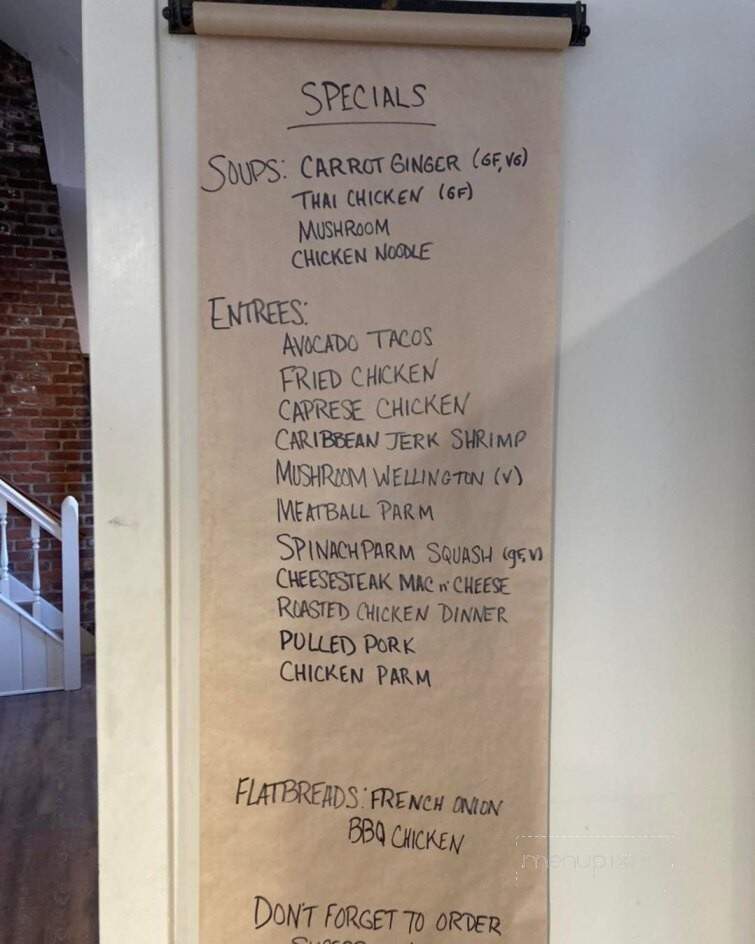 SPECIALS
SOUPS: CARROT GINGER (GF, VG)
THAI CHICKEN (GF)
MUSHROOM
CHICKEN NOODLE
ENTREES:
AVOCADO TACOS
FRIED CHICKEN
CAPRESE CHICKEN
CARIBBEAN JERK SHRIMP
MUSHROOM WELLINGTON (V)
MEATBALL PARM
SPINACH PARM SQUASH (gf, V)
CHEESESTEAK MAC n' CHEESE
ROASTED CHICKEN DINNER
PULLED PORK
CHICKEN PARM
FLATBREADS: FRENCH ONION
BBQ CHICKEN
DON'T FORGET TO ORDER
menupix